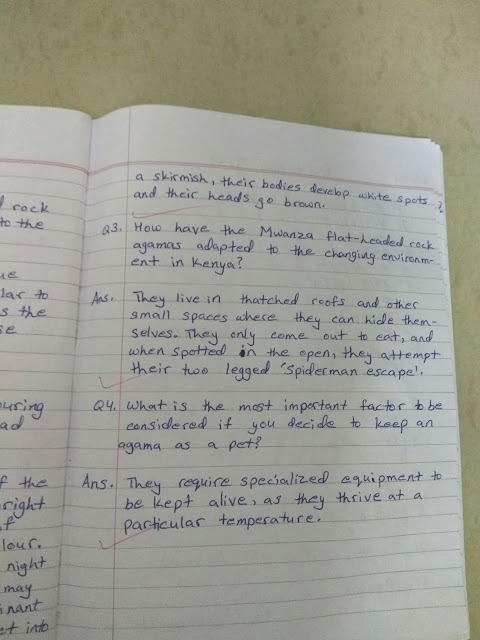 a skirmish, their bodies develop white spots
and their heads go brown.
Q3. How have the Mwanza flat-headed rock
agamas adapted to the changing environm-
ent in Kenya?
Ans. They live in thatched roofs and other
small spaces where they can hide them-
selves. They only come out to eat, and
when spotted in the open, they attempt
their two legged 'Spiderman escape'.
Q4. What is the most important factor to be
considered if you decide to keep an
agama as a pet?
Ans. They require specialized equipment to
be kept alive, as they thrive at a
particular temperature.
rock
to the
lar to
s the
se
ouring
ad
f the
right
f
lour.
night
may
inant
et into